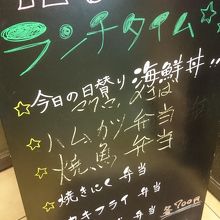 ランチタイム
今日の日替り 海鮮丼!!
ハムカツ弁当
焼魚弁当
焼きにく弁当
カキフライ弁当
各700円